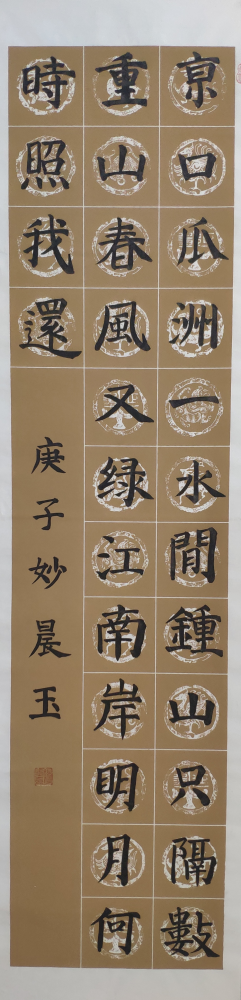 京口瓜洲一水間鍾山只隔數
重山春風又绿江南岸明月何
時照我還
庚子妙晨玉